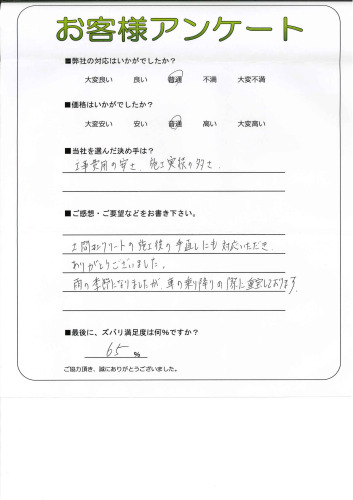 お客様アンケート
■弊社の対応はいかがでしたか?
大変良い 良い 普通 不満 大変不満
■価格はいかがでしたか?
大変安い 安い 普通 高い 大変高い
■当社を選んだ決め手は?
工事費用の安さ、施工実績の多さ
■ご感想・ご要望などをお書き下さい。
土間コンクリートの施工後の手直しにも対応いただき、
ありがとうございました。
雨の季節になりましたが、車の乗り降りの際に重宝しております。
■最後に、ズバリ満足度は何%ですか?
65 %
ご協力頂き、誠にありがとうございました。